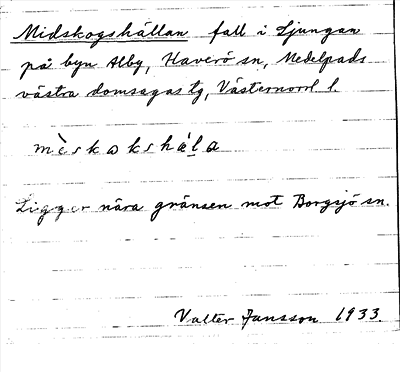 Midskogshällan fall i Ljungan
på byn Alby, Haverö sn, Medelpads
västra domsagas tg, Västernorrl l.
mèskakshála
Ligger nära gränsen mot Borgsjö sn.
Valter Jansson 1933.